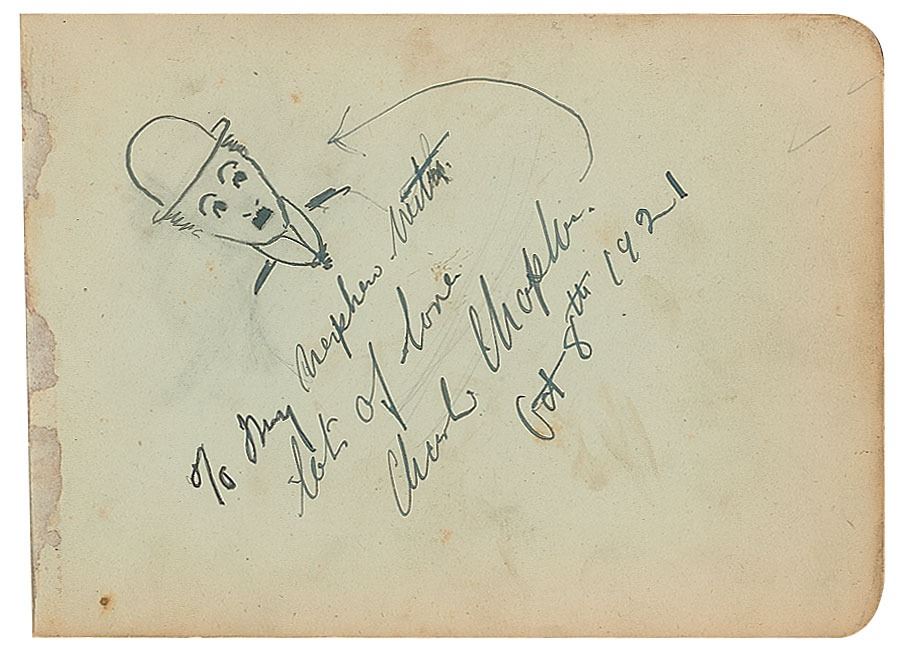 To My nephew with
lots of love
Charlie Chaplin.
Oct 8th 1921